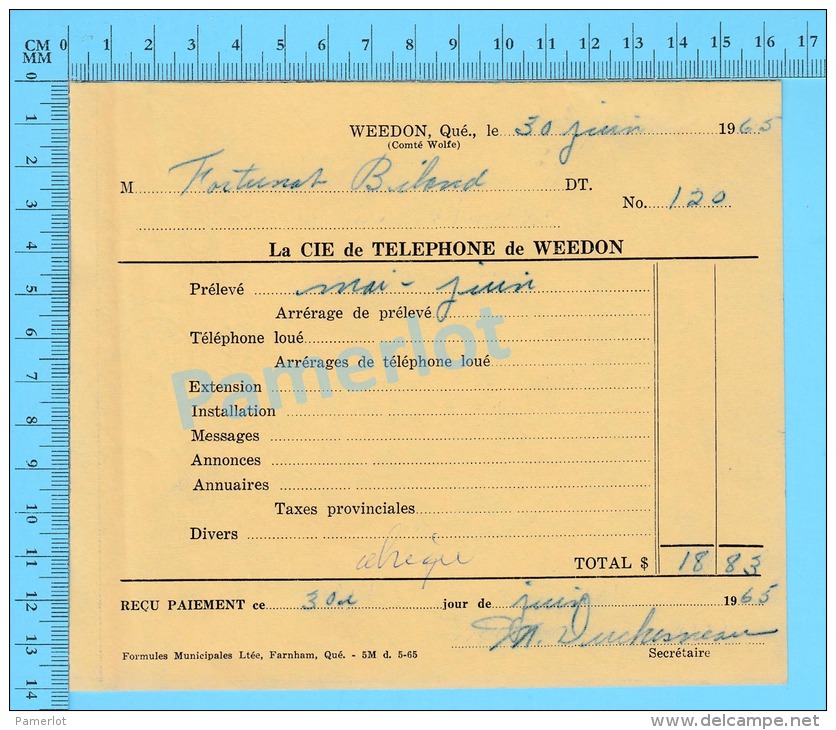 CM 0 1 2 3 4 5 6 7 8 9 10 11 12 13 14 15 16 17
MM
0 1 2 3 4 5 6 7 8 9 10 11 12 13 14
WEEDON, Qué., le 30 juin 1965
(Comté Wolfe)
M Fortunat DT.
No. 120
La CIE de TELEPHONE de WEEDON
Prélevé mai - juin
Arrérage de prélevé
Téléphone loué
Arrérages de téléphone loué
Pamerlot
Extension
Installation
Messages
Annonces
Annuaires
Taxes provinciales
Divers
chèque
TOTAL $ 18 83
REÇU PAIEMENT ce 30e jour de juin 1965
M. Duchesneau
Secrétaire
Formules Municipales Ltée, Farnham, Qué. - 5M d. 5-65
Pamerlot
delcampe.net